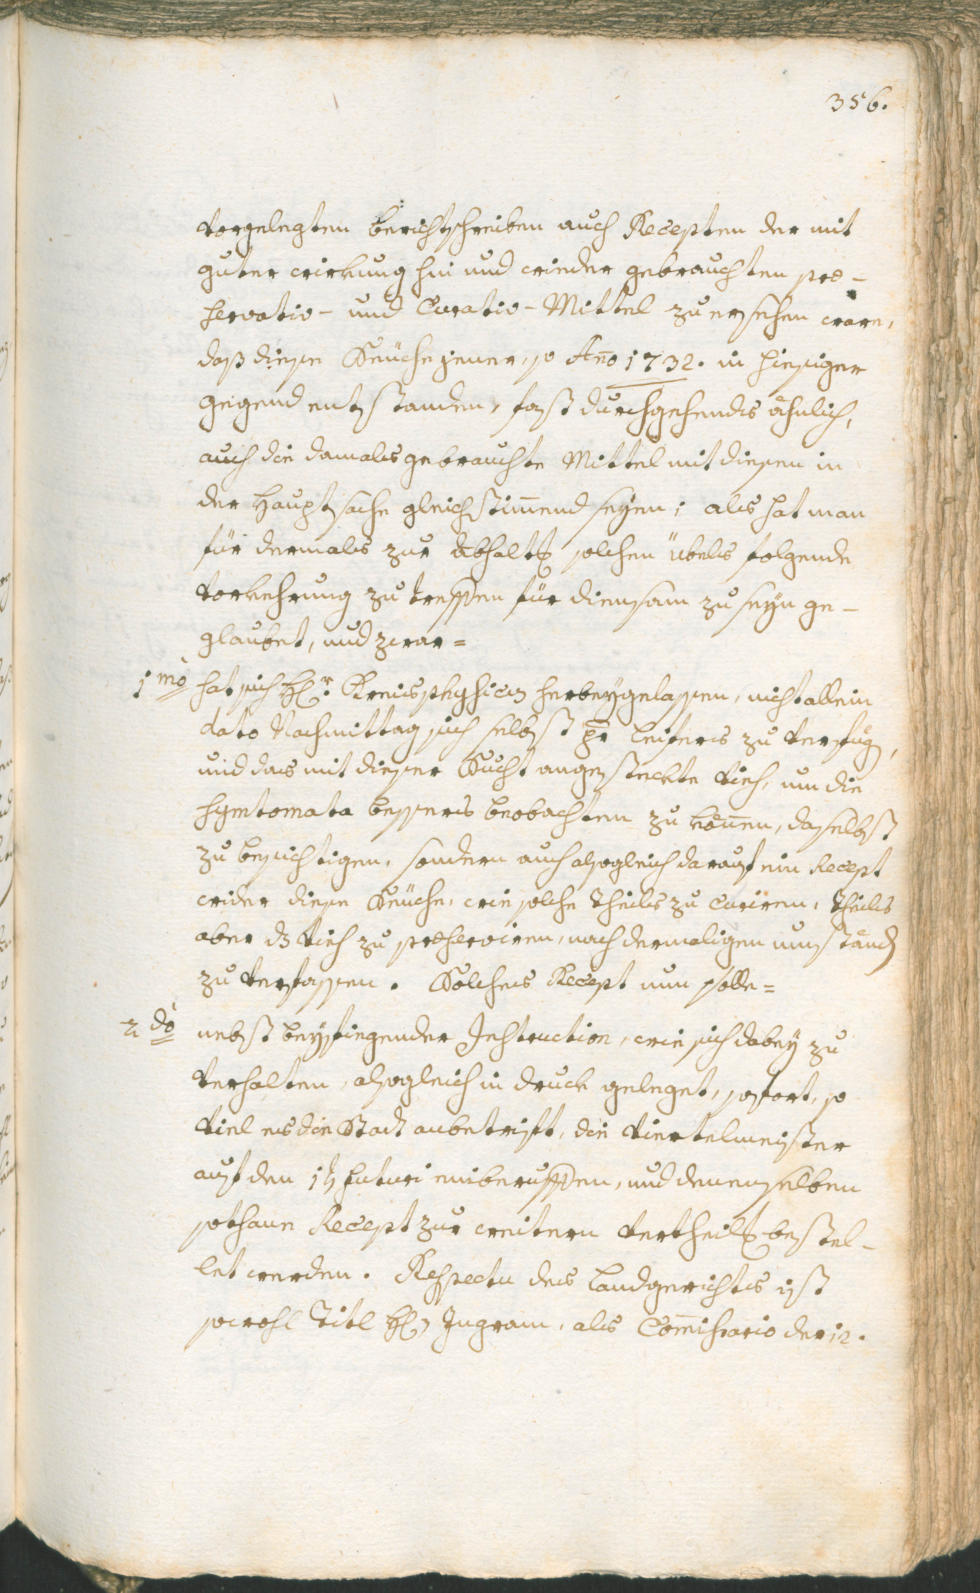 356.
vorgelegten Berichtschreiben auch Recepten der mit
guter wirkung hin und wieder gebrauchten præ-
servativ- und Curativ-Mittel zu ersehen ware,
daß diese Seüche jener, so Ano 1732. in hiesiger
gegend entstanden, fast durchgehends ähnlich,
auch die damals gebrauchte Mittel mit diesen in
der Hauptsache gleichstimend seyen; als hat man
für dermals zur abhaltg solchen Übels folgende
Vorkehrung zu treffen für diensam zu seyn ge-
glaubet, und zwar=
1mo hat sich Hr. Kreisphysicus herbeygelassen, nicht allein
dato Nachmittag sich selbst pr Leifers zu verfüg,
und das mit dieser Sucht angesteckte Vieh, um die
Symtomata bessers beobachten zu könen, daselbst
zu besichtigen, sondern auch alsogleich darauf ein Recept
wider diese Seüche, wie solche theils zu curiren, theils
aber dz Vieh zu præserviren, nach dermaligen umständ
zu verfassen. Solches Recept nun solle=
2do nebst beyfügender Instruction, wie sich dabey zu
verhalten, alsogleich in druck geleget, sofort, so
viel es die Stadt anbetrifft, die Viertelmeister
auf den 1t futuri einberuffen, und denenselben
sothane Recept zur weitern vertheilg bestel-
let werden. Respectu des Landgerichts ist
sowohl Titl H. Ingram, als Comissario der 12.